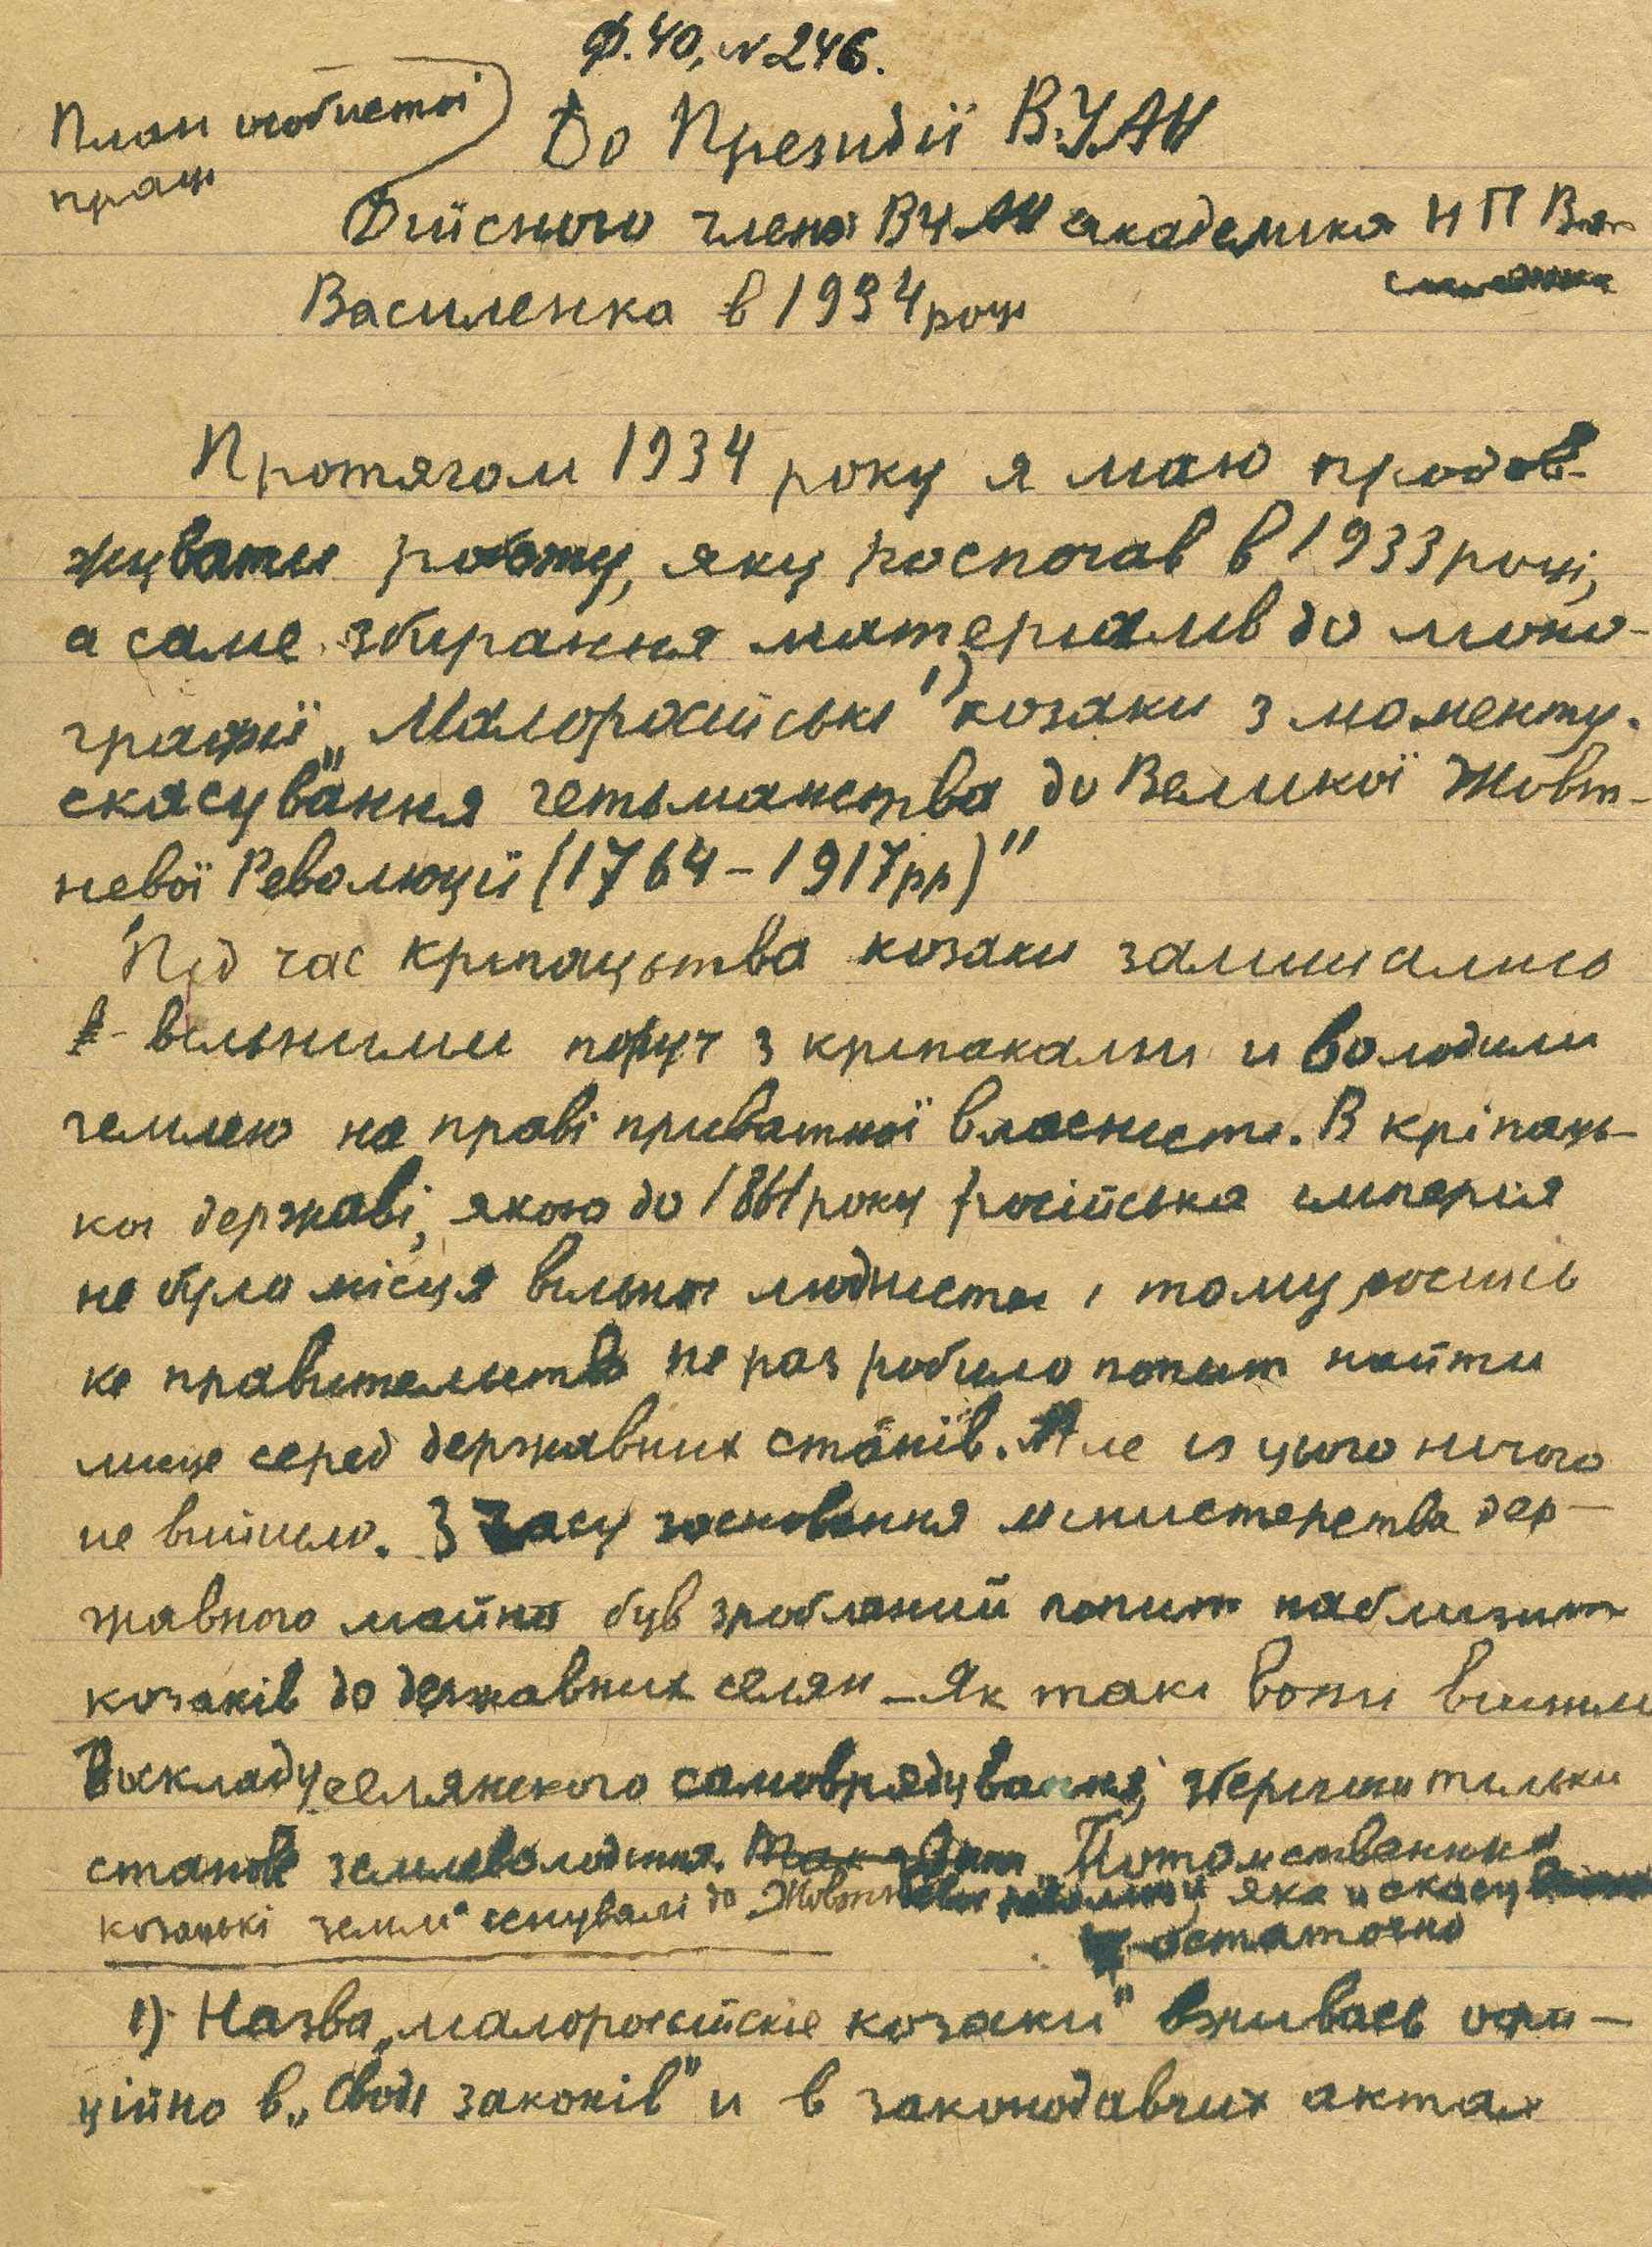 Ф. 40, N 246.
План особистої
праці
До Президії ВУАН
Дійсного члена ВУАН академика Н П Ва-
Василенка в 1934 роци
Протягом 1934 року я маю продов-
жувати роботу, яку роспочав в 1933 році,
а саме збирання материалив до моно-
графії „Малоросійськи 1) козаки з моменту
скасування гетьманства до Великої Жовт-
невої Революції (1764 – 1917 рр)"
Під час кріпацьтва козаки залишались
вильними поруч з крипаками и володили
землею на праві приватної власности. В кріпаць-
ки державі, якою до 1861 року російська империя
не було місця вильно людности і тому росийсь
ке правительство не раз робило попит найти
мисце серед державних станів. Але из цього ничого
не вийшло. З часу заснования министерства дер-
жавного майна був зроблений попит наблизит
козаків до державних селян – Як таки вони вийшли
в склад селянского самоврядування, зберигши тильки
станове землеволодиння. „Потомственни
козацькі земли" иснували до Жовтневи революци яка и скасу
остаточно
1) Назва „малоросийские козаки" вживаеь офи-
ційно в „Своди законів" и в законодавчих актах